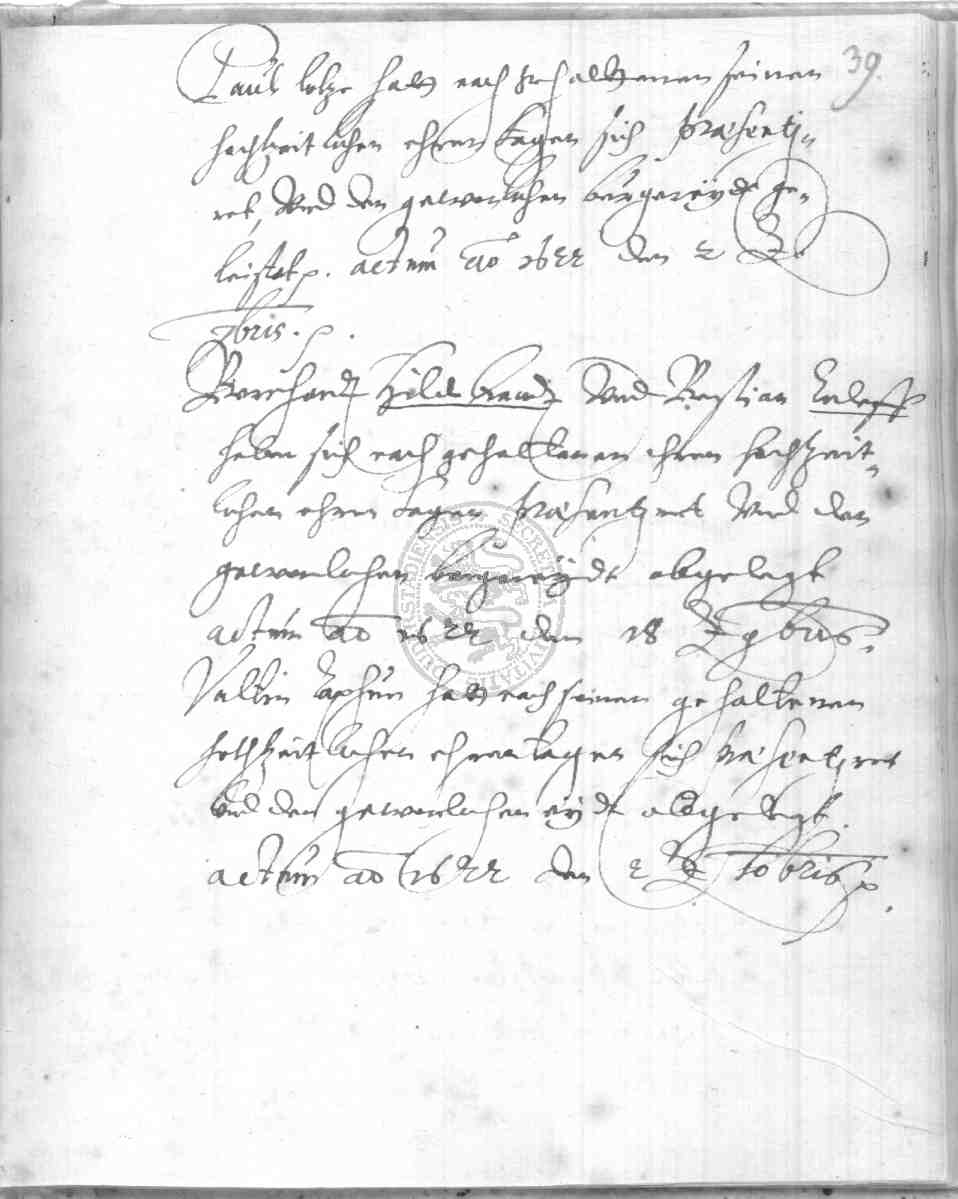 39.
Paul lotze hatt nach gehalttenen seinen
hochzeitlichen ehren tagen sich præsenti„
ret, Vnd den gewonlichen burgereydt ge„
leistet p. actum ao 1622 den 2
7bris. p.
Borchardt Hildebrandt Vnd Bastian
haben sich nach gehalttenen ihren hochzeit„
lichen ehren tagen præsentiret Vnd den
gewonlichen burgereydt abgelegt
actum ao 1622 den 18 9bris.
Valtin hatt nach seinen gehaltenen
hochzeitlichen ehrentagen sich præsentiret
Vnd den gewonlichen eydt abgelegt.
actum ao 1622 den 2 10bris p.
SECRETUM CIVITATIS